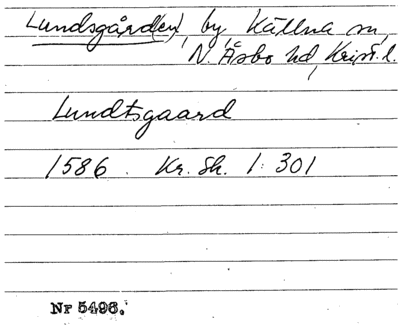 Lundsgård(en), by, Källna sn,
N. Åsbo hd, Krist. l.
Lundtsgaard
1586. Kr. Sk. 1:301
Nr 5496.